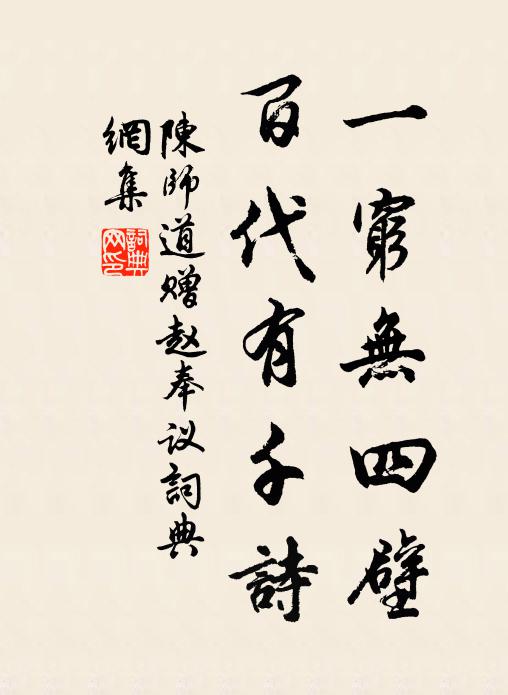 一窮無四壁
百代有千詩
陳師道贈赵奉议詞典
網集
詞典
网印